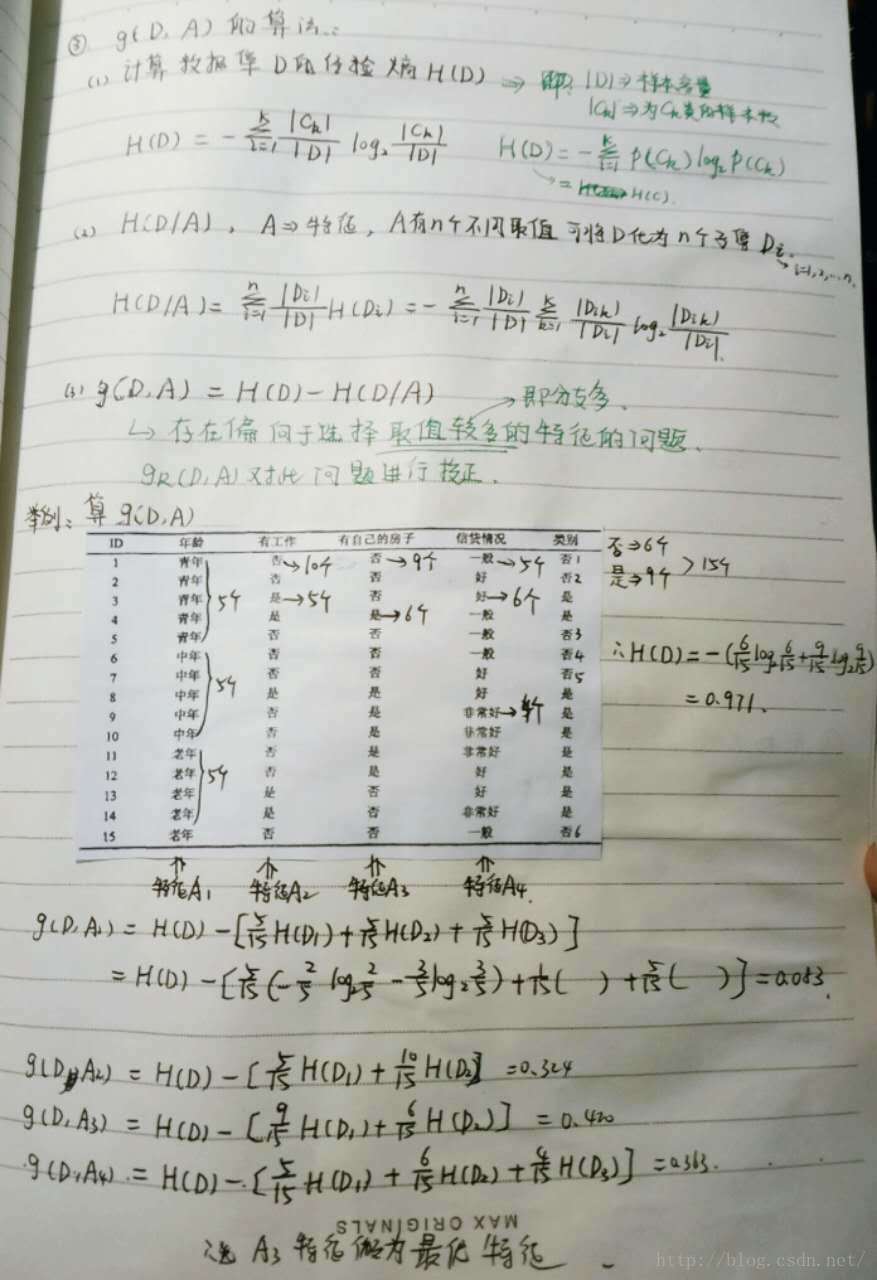 ③ g(D, A) 的算法：
(1) 计算数据集D的经验熵 H(D) ⇒ 即: |D|⇒样本容量
|Ck|⇒为Ck类的样本数
H(D) = - Σ_{i=1}^{k} |Ck|/|D| log₂ |Ck|/|D|   H(D) = - Σ_{i=1}^{k} P(Ck) log₂ P(Ck)
= H(C).
(2) H(D/A), A⇒特征, A有n个不同取值 可将D化为n个子集 Di.
i=1,2,...n.
H(D/A) = Σ_{i=1}^{n} |Di|/|D| H(Di) = - Σ_{i=1}^{n} |Di|/|D| Σ_{k=1}^{k} |Dik|/|Di| log₂ |Dik|/|Di|.
(3) g(D,A) = H(D) - H(D/A) → 即分支多.
↳ 存在偏向于选择取值较多的特征的问题.
gR(D,A)对此问题进行校正.
举例: 算 g(D,A)
ID 年龄 有工作 有自己的房子 信贷情况 类别
1 青年 否→10个 否→9个 一般→5个 否1
2 青年 否 否 好 否2
3 青年 是→5个 否 好→6个 是
4 青年 是 是→6个 一般 是
5 青年 否 否 一般 否3
6 中年 否 否 一般 否4
7 中年 否 否 好 否5
8 中年 是 是 好 是
9 中年 否 是 非常好→4个 是
10 中年 否 是 非常好 是
11 老年 否 是 非常好 是
12 老年 否 是 好 是
13 老年 是 否 好 是
14 老年 是 否 非常好 是
15 老年 否 否 一般 否6
5个
5个
5个
否⇒6个
是⇒9个 > 15个
∴H(D) = -(6/15 log₂ 6/15 + 9/15 log₂ 9/15)
= 0.971.
特征A₁ 特征A₂ 特征A₃ 特征A₄.
g(D,A₁) = H(D) - [5/15 H(D₁) + 5/15 H(D₂) + 5/15 H(D₃)]
= H(D) - [5/15 (-2/5 log₂ 2/5 - 3/5 log₂ 3/5) + 1/15 ( ) + 5/15 ( )] = 0.083.
g(D,A₂) = H(D) - [5/15 H(D₁) + 10/15 H(D₂)] = 0.324
g(D,A₃) = H(D) - [9/15 H(D₁) + 6/15 H(D₂)] = 0.420
g(D,A₄) = H(D) - [5/15 H(D₁) + 6/15 H(D₂) + 4/15 H(D₃)] = 0.363.
MAX ORIGINALS
∴选 A₃ 特征做为最优特征
http://blog.csdn.net/